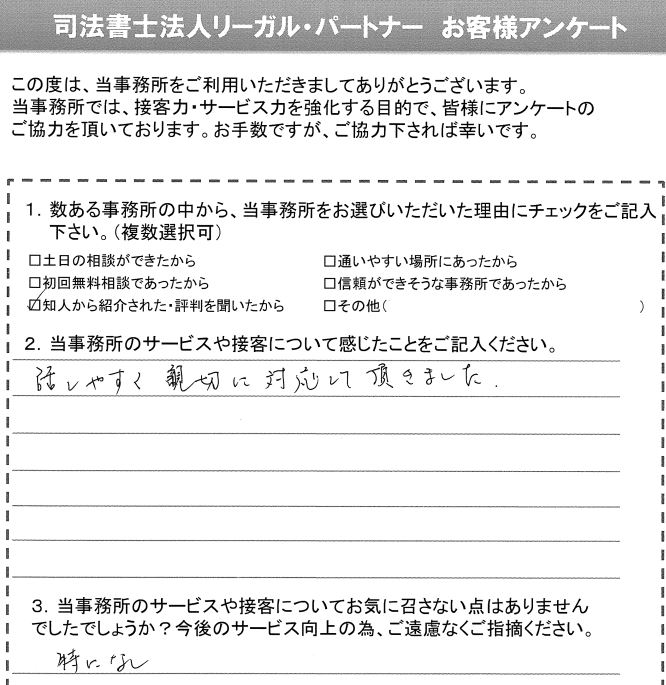 司法書士法人リーガル・パートナー お客様アンケート
この度は、当事務所をご利用いただきましてありがとうございます。
当事務所では、接客力・サービス力を強化する目的で、皆様にアンケートの
ご協力を頂いております。お手数ですが、ご協力下されば幸いです。
1．数ある事務所の中から、当事務所をお選びいただいた理由にチェックをご記入
下さい。（複数選択可）
□土日の相談ができたから □通いやすい場所にあったから
□初回無料相談であったから □信頼ができそうな事務所であったから
☑知人から紹介された・評判を聞いたから □その他（ ）
2．当事務所のサービスや接客について感じたことをご記入ください。
話しやすく親切に対応して頂きました．
3．当事務所のサービスや接客についてお気に召さない点はありません
でしたでしょうか？今後のサービス向上の為、ご遠慮なくご指摘ください。
特になし